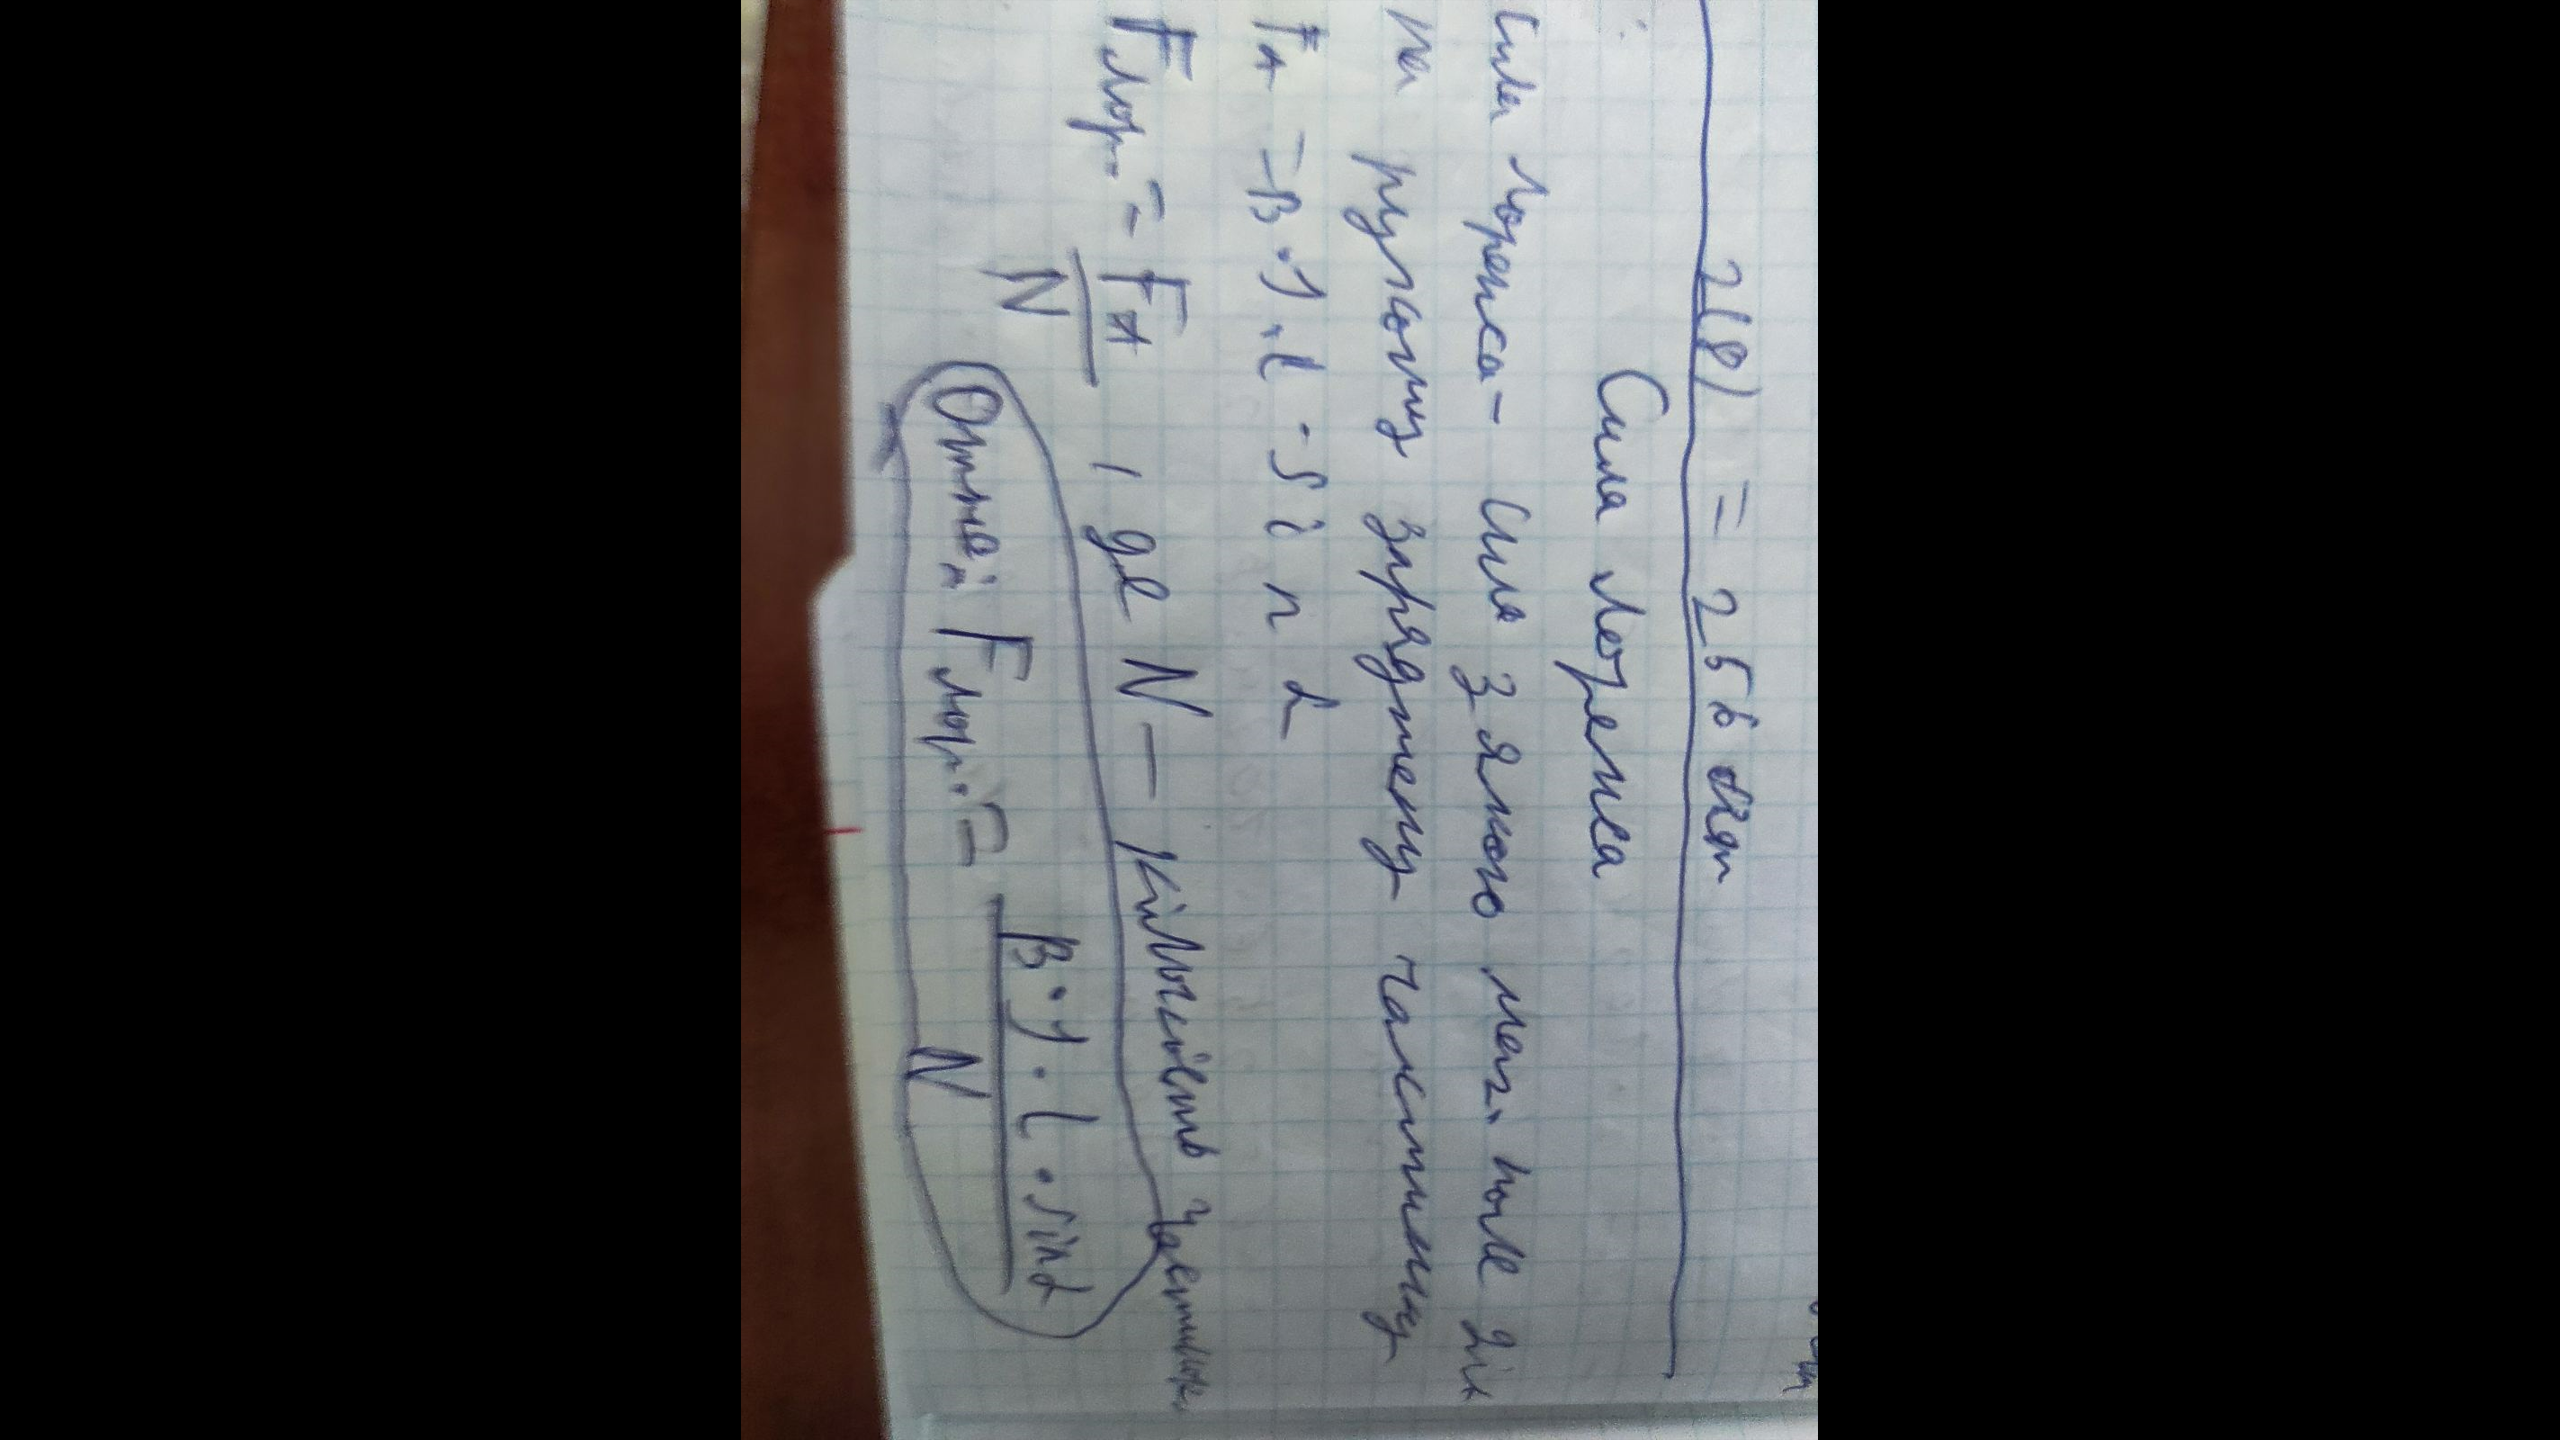 2(8) = 256 біт
Сила Лоренса
Сила Лоренса - сила з якою маг. поле діє
на рухому заряджену частинку
FA = B · J · l · sin α
Fлор. = FA / N , де N — кількість частинок
Отже: Fлор. = B · J · l · sin α / N